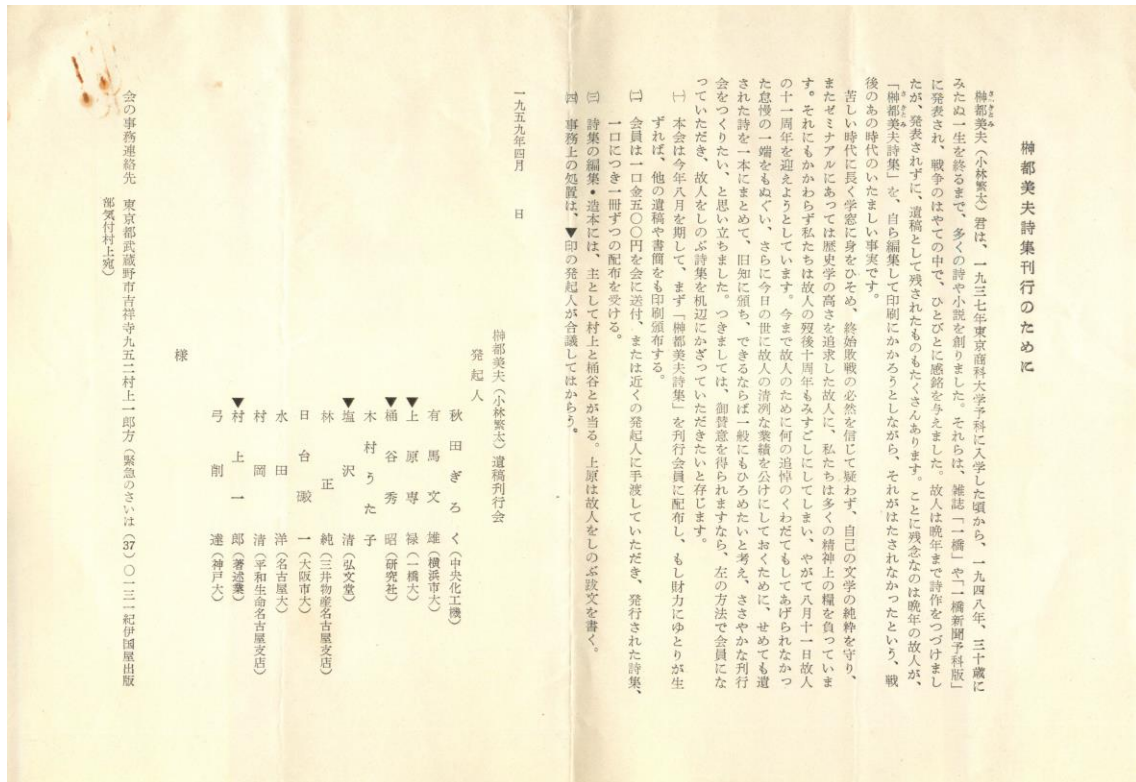 榊都美夫詩集刊行のために
榊都美夫(小林繁太)君は、一九三七年東京商科大学予科に入学した頃から、一九四八年、三十歳に
みたぬ一生を終るまで、多くの詩や小説を創りました。それらは、雑誌「一橋」や「一橋新聞予科版」
に発表され、戦争のはやての中で、ひとびとに感銘を与えました。故人は晩年まで詩作をつづけまし
たが、発表されずに、遺稿として残されたものもたくさんあります。ことに残念なのは晩年の故人が、
「榊都美夫詩集」を、自ら編集して印刷にかかろうとしながら、それがはたされなかったという、戦
後のあの時代のいたましい事実です。
苦しい時代に長く学窓に身をひそめ、終始敗戦の必然を信じて疑わず、自己の文学の純粋を守り、
またゼミナアルにあっては歴史学の高さを追求した故人に、私たちは多くの精神上の糧を負っていま
す。それにもかかわらず私たちは故人の歿後十周年もみすごしにしてしまい、やがて八月十一日故人
の十一周年を迎えようとしています。今まで故人のために何の追悼のくわだてもしてあげられなかっ
た怠慢の一端をもぬぐい、さらに今日の世に故人の清冽な業績を公けにしておくために、せめても遺
された詩を一本にまとめて、旧知に頒ち、できるならば一般にもひろめたいと考え、ささやかな刊行
会をつくりたい、と思い立ちました。つきましては、御賛意を得られますなら、左の方法で会員にな
っていただき、故人をしのぶ詩集を机辺にかざっていただきたいと存じます。
㈠ 本会は今年八月を期して、まず「榊都美夫詩集」を刊行会員に配布し、もし財力にゆとりが生
ずれば、他の遺稿や書簡をも印刷頒布する。
㈡ 会員は一口金五〇〇円を会に送付、または近くの発起人に手渡していただき、発行された詩集、
一口につき一冊ずつの配布を受ける。
㈢ 詩集の編集・造本には、主として村上と桶谷とが当る。上原は故人をしのぶ跋文を書く。
㈣ 事務上の処置は、▼印の発起人が合議してはからう。
一九五九年四月 日
榊都美夫(小林繁太)遺稿刊行会
発起人
秋田ぎろく(中央化工機)
有馬文雄(横浜市大)
▼上原専禄(一橋大)
▼桶谷秀昭(研究社)
木村うた子
▼塩沢清(弘文堂)
林正純(三井物産名古屋支店)
日台磤一(大阪市大)
水田洋(名古屋大)
村岡清(平和生命名古屋支店)
▼村上一郎(著述業)
弓削達(神戸大)
様
会の事務連絡先 東京都武蔵野市吉祥寺九五二村上一郎方(緊急のさいは(37)〇一三一紀伊国屋出版
部気付村上宛)